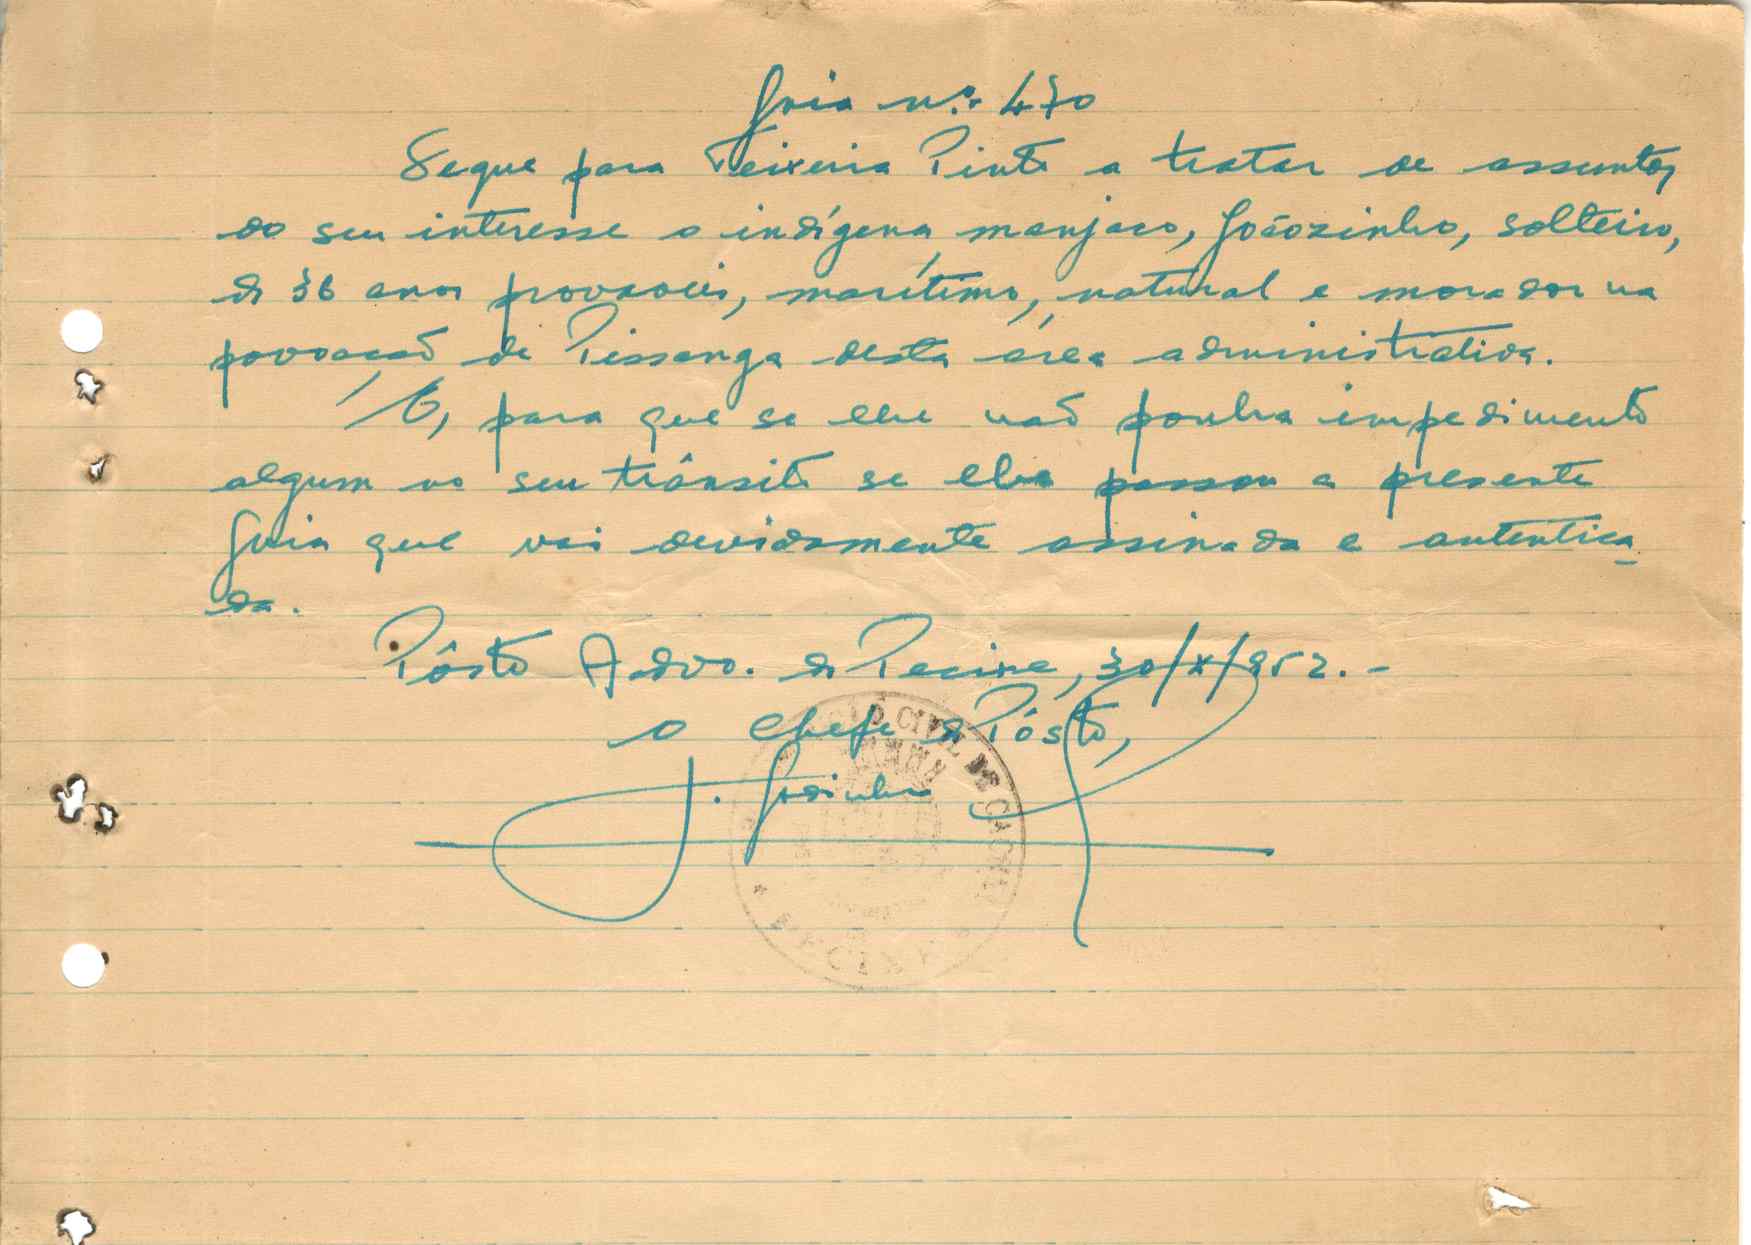 Guia n.º 470
Segue para Teixeira Pinto a tratar de assuntos
do seu interesse o indígena, manjaco, Joãozinho, solteiro,
de 36 anos provaveis, marítimo, natural e morador na
povoação de Pissanga desta área administrativa.
E, para que se lhe não ponha impedimento
algum no seu trânsito se lhe passou a presente
Guia que vai devidamente assinada e autentica
da.
Pôsto Advo. de Pecixe, 30/X/952.-
O Chefe de Pôsto,
J. Godinho
CIVIL DE CACHEU
* PECIXE *